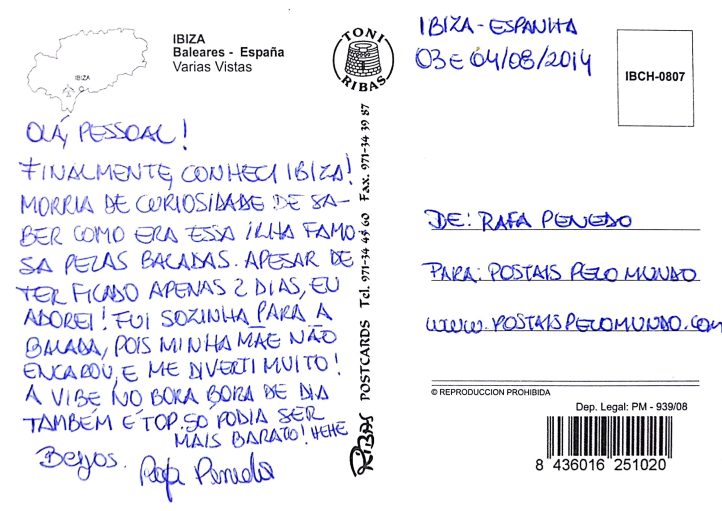 IBIZA
Baleares - España
Varias Vistas
IBIZA
TONI
RIBAS
IBIZA - ESPANHA
03 E 04/08/2014
IBCH-0807
OLÁ, PESSOAL!
FINALMENTE, CONHECI IBIZA!
MORRIA DE CURIOSIDADE DE SA-
BER COMO ERA ESSA ILHA FAMO
SA PELAS BALADAS. APESAR DE
TER FICADO APENAS 2 DIAS, EU
ADOREI! FUI SOZINHA PARA A
BALADA, POIS MINHA MÃE NÃO
ENCAROU, E ME DIVERTI MUITO!
A VIBE NO BORA BORA DE DIA
TAMBÉM É TOP. SÓ PODIA SER
MAIS BARATO! HEHE
Beijos.
Rafa Penedo
RIBAS POSTCARDS Tel. 971-34 49 60 Fax. 971-34 39 87
DE: RAFA PENEDO
PARA: POSTAIS PELO MUNDO
WWW.POSTAISPELOMUNDO.COM
© REPRODUCCION PROHIBIDA
Dep. Legal: PM - 939/08
8 436016 251020